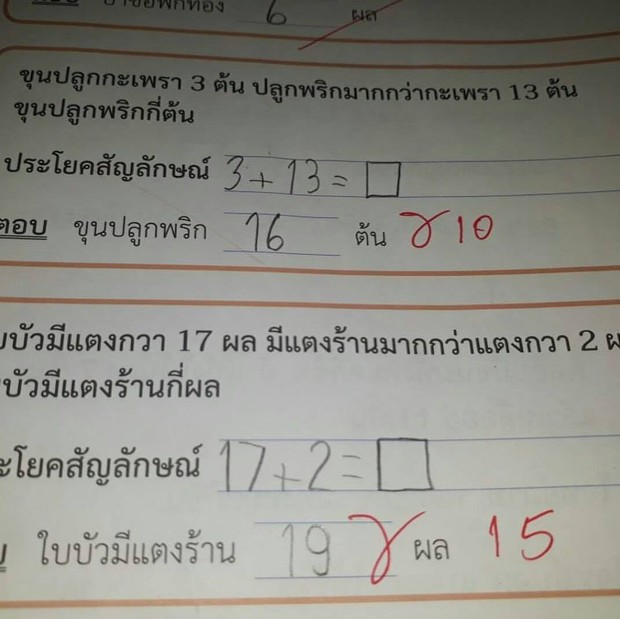 6 ผล
ขุนปลูกกะเพรา 3 ต้น ปลูกพริกมากกว่ากะเพรา 13 ต้น
ขุนปลูกพริกกี่ต้น
ประโยคสัญลักษณ์ 3 + 13 = □
ตอบ ขุนปลูกพริก 16 ต้น 10
บบัวมีแตงกวา 17 ผล มีแตงร้านมากกว่าแตงกวา 2 ผ
บัวมีแตงร้านกี่ผล
ะโยคสัญลักษณ์ 17 + 2 = □
ใบบัวมีแตงร้าน 19 ผล 15